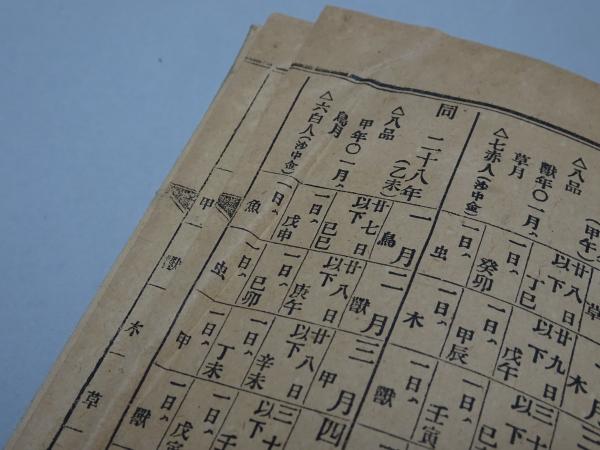 △八品
獣年〇一月ヘ
草月
△七赤人(沙中金)
草
廿八日
以下
丁巳
一日ヘ
癸卯
一日ヘ
虫
木
廿九日
以下
戊午
一日ヘ
甲辰
一日ヘ
木
三十
以下
一日ヘ
壬寅
一日ヘ
獣
同二十八年
△八品(乙未)
甲年〇一月ヘ
鳥月
△六白人(沙中金)
一月
鳥
廿七日
以下
己巳
一日ヘ
戊申
一日ヘ
魚
二月
獣
廿八日
以下
庚午
一日ヘ
己卯
一日ヘ
虫
三月
甲
廿八日
以下
辛未
一日ヘ
丁未
一日ヘ
甲
四
三十
以下
一日ヘ
戊寅
一日ヘ
獣
甲一
獣一
木一
草一